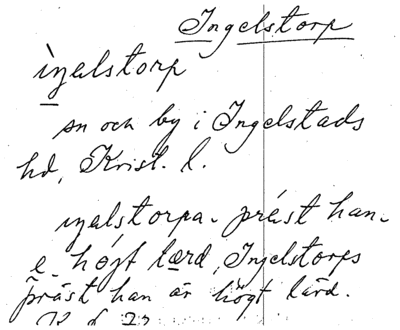 Ingelstorp
ìŋalstorp
sn och by i Ingelstads
hd, Krist. l.
ıŋalstorpa- prést han-
e- höjt lærd, Ingelstorps
präst han är högt lärd.